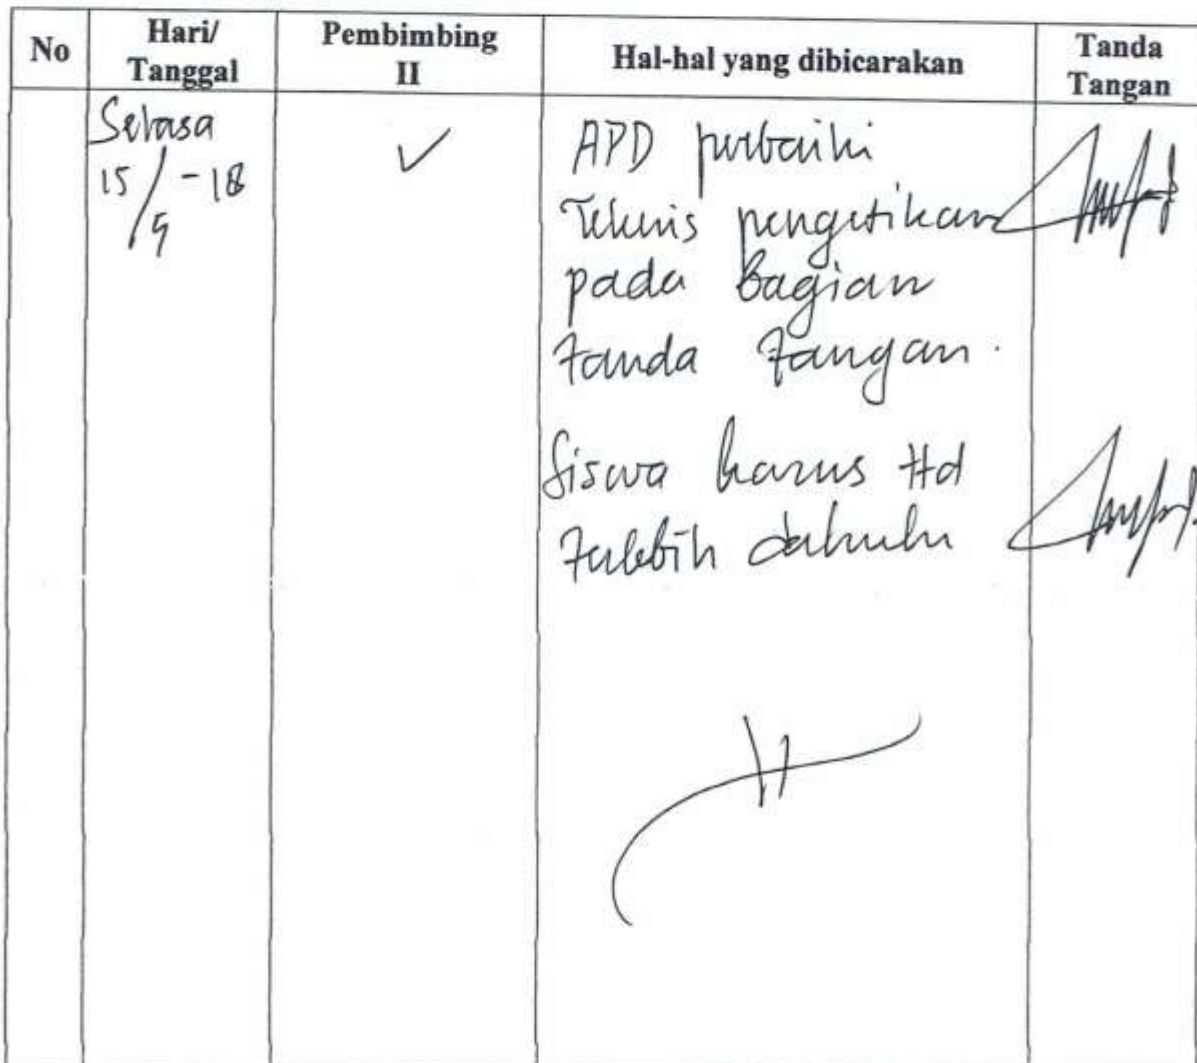 No
Hari/
Tanggal
Pembimbing
II
Hal-hal yang dibicarakan
Tanda
Tangan
Selasa
15/5-18
✓
APD perbaiki
Teknis pengetikan
pada bagian
tanda tangan.
Siswa harus ttd
terlebih dahulu